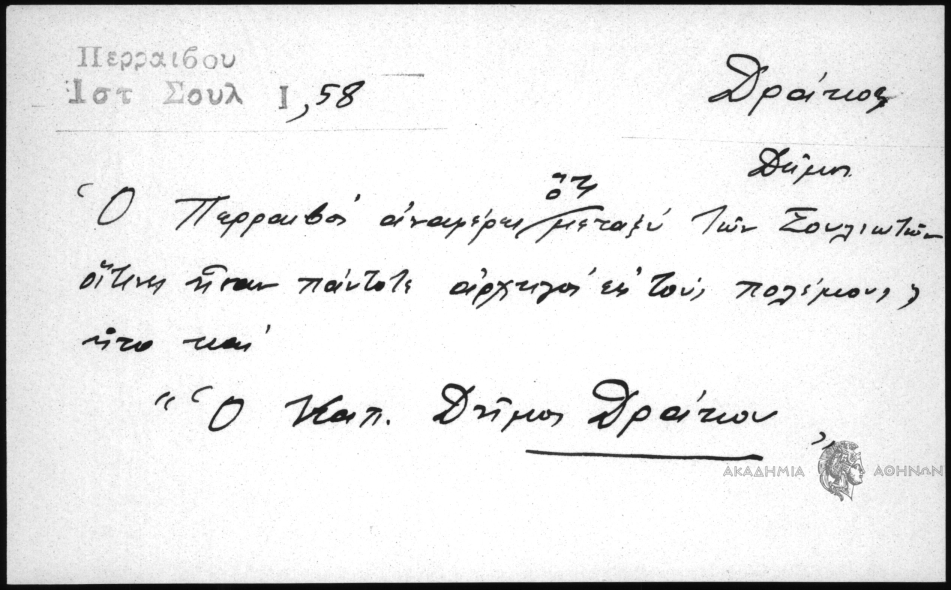 Περραιβου
Ιστ Σουλ Ι, 58
Δράκος
Δῆμος
Ὁ Περραιβὸς ἀναφέρει ὅτι μεταξὺ τῶν Σουλιωτῶν
οἵτινες ἦσαν πάντοτε ἀρχηγοὶ εἰς τοὺς πολέμους,
ἦτο καὶ
"Ὁ Καπ. Δῆμος Δράκου"
ΑΚΑΔΗΜΙΑ ΑΘΗΝΩΝ